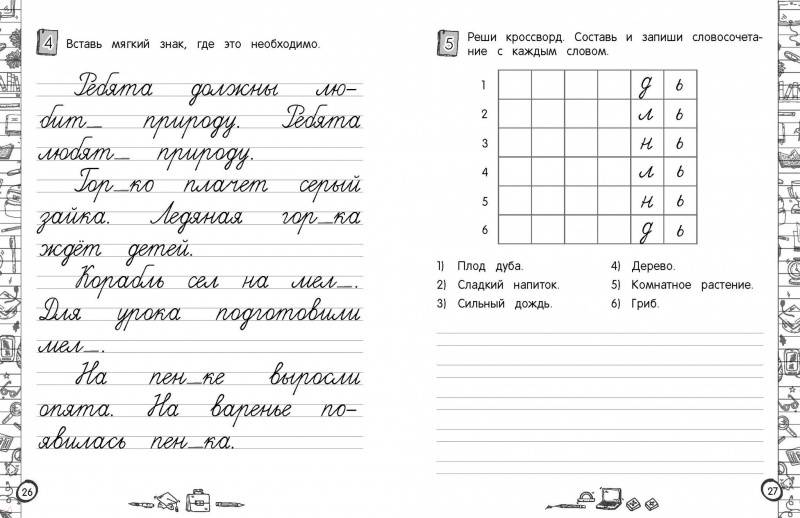 4 Вставь мягкий знак, где это необходимо.
Ребята должны лю-
бит_ природу. Ребята
любят_ природу.
Гор_ко плачет серый
зайка. Ледяная гор_ка
ждёт детей.
Корабль сел на мел_.
Для урока подготовили
мел_.
На пен_ке выросли
опята. На варенье по-
явилась пен_ка.
26
5 Реши кроссворд. Составь и запиши словосочета-
ние с каждым словом.
1 д ь
2 л ь
3 н ь
4 л ь
5 н ь
6 д ь
1) Плод дуба.
2) Сладкий напиток.
3) Сильный дождь.
4) Дерево.
5) Комнатное растение.
6) Гриб.
27